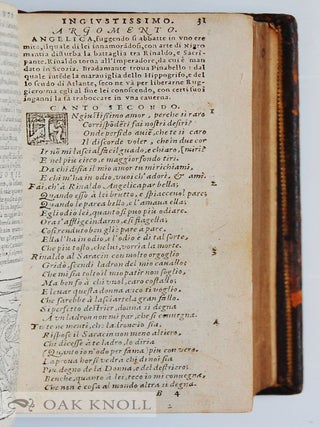 INGIVSTISSIMO. 31
ARGOMENTO.
ANGELICA, fuggendo si abbatte in vno ere
mita, il quale di lei innamoratosi, con arte di Nigro
mantia disturba la battaglia tra Rinaldo, e Sacri-
pante. Rinaldo torna all'Imperadore, da cui è man
dato in Scotia. Bradamante troua Pinabello: dal
quale intese la marauiglia dello Hippogrifo, e del
lo scudo di Atlante,
giero: ma egli al fine lei conoscendo, con certi suoi
inganni la fà traboccare in vna cauerna.
CANTO SECONDO.
Ngiustissimo amor, perche sì raro 1
Corrispondēti fai nostri desiri?
Onde perfido auiē, che te sì caro
Il discorde voler, che in due cor
Ir no mi lasci al facil guado, e chiaro, (miri?
E nel piu cieco, e maggior fondo tiri.
Da chi disia il mio amor tu mi richiami,
E chi m'ha in odio, vuoi ch'adori, & ami.
Fai, ch'à Rinaldo Angelica par bella, 2
Quando esso à lei brutto, e spiaceuol pare;
Quando le parea bello, e l'amaua ella;
Egli odiò lei, quanto si puo più odiare.
Hora s'afflige indarno, e si flagella;
Così renduto ben gli è pare à pare.
Ella l'ha in odio, e l'odio è di tal sorte,
Che piu tosto, che lui, vorria la morte.
Rinaldo al Saracin con molto orgoglio 3
Gridò, scendi ladron del mio cauallo;
Che mi sia tolto il mio patir non soglio,
Ma ben fò à chi lo vuol, caro costallo;
E leuar questa donna anco ti voglio,
Che sarebbe à lasciartela gran fallo.
Sì perfetto destrier, donna sì degna
A vn ladron non mi par, che si conuegna.
Tu te ne menti, che ladrone io sia, 4
Rispose il Saracin non meno altiero,
Chi dicesse à te ladro, lo diria
(Quanto io n'odo per fama) piu con vero.
La proua hor si vedrà chi di noi sia
Piu degno de la Donna, e del destriero;
Benche, quanto à lei, teco io mi conuegna,
Che non è cosa al mondo altra sì degna.
B 4
OAK KNOLL